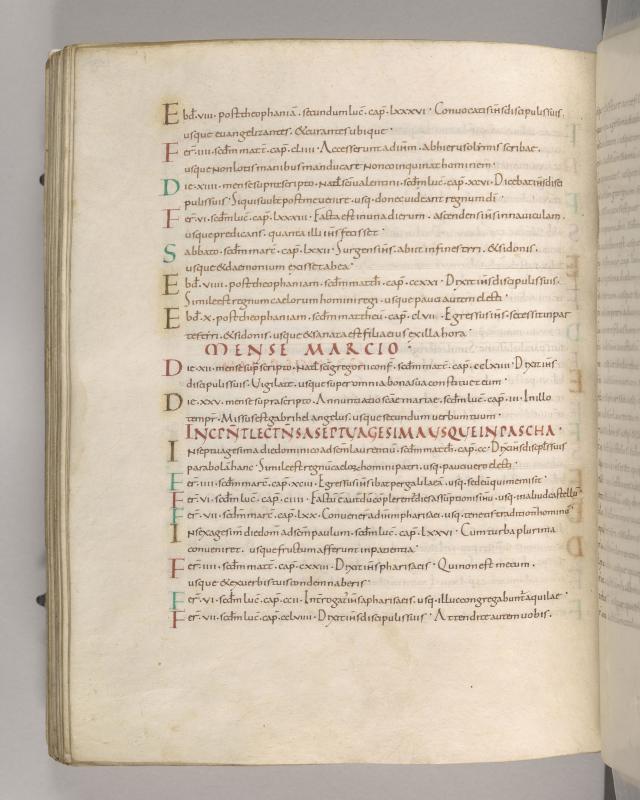 Ebd̄. viii. post theophaniā. secundum luc̄. cap̄. lxxxvi. Convocatis ihs̄ discipulis suis.
usque evangelizantes. & curantes ubique.
Fer̄. iiii. scdm̄ matt̄. cap̄. cliiii. Accesserunt ad ihm̄. ab hierusolimis scribae.
usque Non lotis manibus manducare non coinquinat hominem.
Die. xiiii. mense suprascripto. Natl̄ sc̄i valentini. scdm̄ luc̄. cap̄. xcvi. Dicebat ihs̄ disci
pulis suis. Si quis vult post me venire. usq. donec videant regnum dī.
Fer̄. vi. scdm̄ luc̄. cap̄. lxxxiii. Facta est in una dierum. ascendens ihs̄ in naviculam.
usque predicans. quanta illi ihs̄ fecisset.
Sabbato. scdm̄ marc̄. cap̄. lxxii. Surgens ihs̄. abiit in fines tyri. & sidonis.
usque & daemonium exisset ab ea.
Ebd̄. viiii. post theophaniam. scdm̄ matth̄. cap̄. ccxxi. Dixit ihs̄ discipulis suis.
Simile est regnum caelorum homini regi. usque pauci autem electi.
Ebd̄. x. post theophaniam. scdm̄ mattheū. cap̄. clvii. Egressus ihs̄. secessit in par
tes tyri. & sidonis. usque & sanata est filia eius ex illa hora.
MENSE MARCIO.
Die. xii. mense sup̄scripto. Natl̄ sc̄i gregorii conf̄. scdm̄ matt̄. cap̄. cclxiiii. Dixit ihs̄
discipulis suis. Vigilate. usque super omnia bona sua constituet eum.
Die. xxv. mense suprascripto. Annuntiatio sc̄ae mariae. scdm̄ luc̄. cap̄. iii. In illo
tempr̄. Missus est gabrihel angelus. usque secundum verbum tuum.
INCPN̄T LECTN̄S A SEPTUAGESIMA USQUE IN PASCHA.
In septuagesima die dominico ad sc̄m laurentiū. scdm̄ matth̄. cap̄. cc. Dixit ihs̄ discipl̄is suis
parabolā hanc. Simile est regnū caeloꝝ homini patri. usq. pauci vero electi.
Fer̄. iiii. scdm̄ marc̄. cap̄. xciii. Egressus ihs̄ ibat per galilaeā. usq. sed eū qui me misit.
Fer̄. vi. scdm̄ luc̄. cap̄. ciiii. Factū ē autē dū cōplerent̄ dies assūptionis ihū. usq. in aliud castellū.
Fer̄. vii. scdm̄ marc̄. cap̄. lxx. Convenerᵭ ad ihm̄ pharisaei. usq. tenetis traditionē hominū.
In sexagesim̄ die dom̄ ad sc̄m paulum. scdm̄ luc̄. cap̄. lxxvi. Cum turba plurima
conveniret. usque fructum afferunt in patientia.
Fer̄. iiii. scdm̄ matt̄. cap̄. cxxiii. Dixit ihs̄ pharisaeis. Qui non est mecum.
usque & ex verbis tuis condemnaberis.
Fer̄. vi. scdm̄ luc̄. cap̄. ccii. Interrogat̄ ihs̄ a pharisaeis. usq. illuc congregabunt̄ aquilae.
Fer̄. vii. scdm̄ luc̄. cap̄. cclviiii. Dixit ihs̄ discipulis suis. Attendite autem vobis.